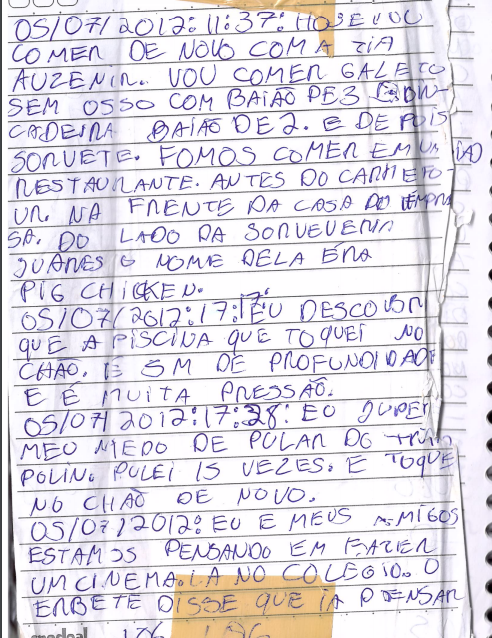 05/07/2012: 11:37: HOJE VOU
COMER DE NOVO COM A TIA
AUZENIR. VOU COMER GALETO
SEM OSSO COM BAIÃO DE 3. BRIN-
CADEIRA BAIÃO DE 2. E DEPOIS
SORVETE. FOMOS COMER EM UM
RESTAURANTE. ANTES DO CARREFO
UR. NA FRENTE DA CASA DO
SA. DO LADO DA SORVEVERIA
JUARES O NOME DELA ERA
PIG CHICKEN.
05/07/2012: 17:17: EU DESCOBRI
QUE A PISCINA QUE TOQUEI NO
CHÃO. É 5M DE PROFUNDIDADE
E É MUITA PRESSÃO.
05/07/2012: 17:38: EU SUPER
MEU MEDO DE PULAR DO TRAM
POLIN. PULEI 15 VEZES. E TOQUE
NO CHÃO DE NOVO.
05/07/2012: EU E MEUS AMIGOS
ESTAMOS PENSANDO EM FAZER
UM CINEMA. LA NO COLEGIO. O
ERBETE DISSE QUE IA PENSAR